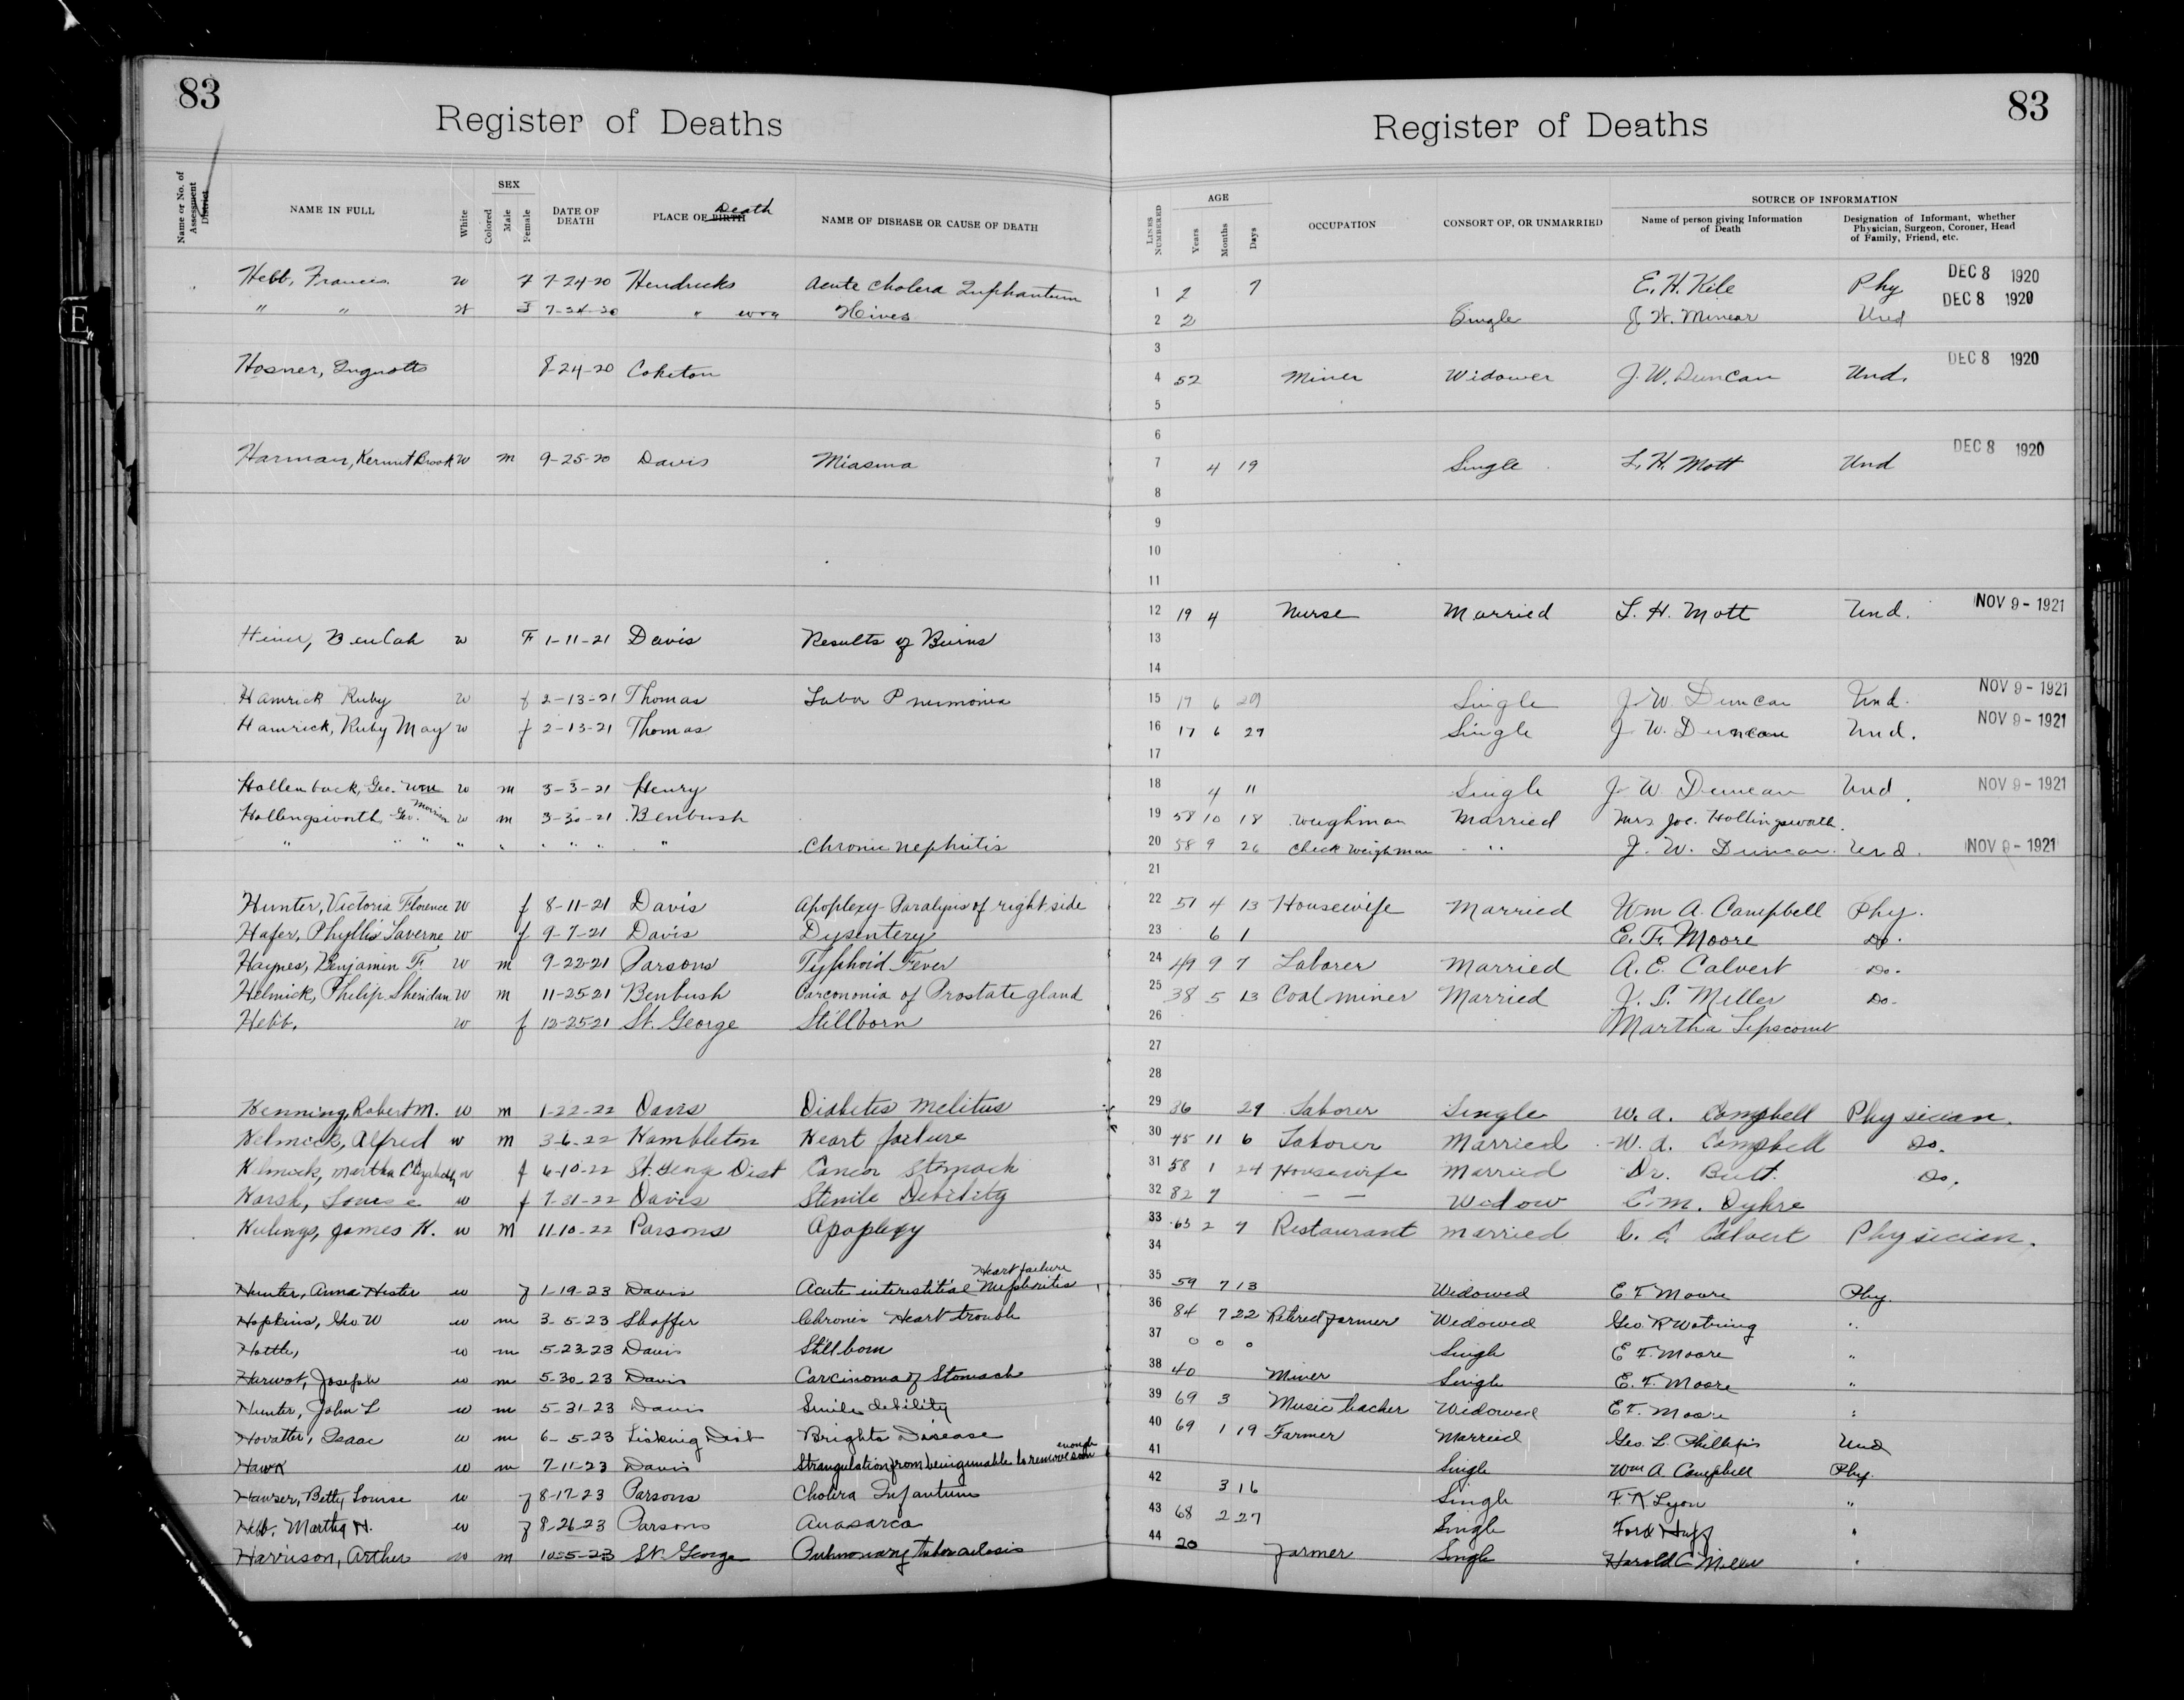 83
Register of Deaths
Name or No. of Assessment District
NAME IN FULL
White
Colored
SEX
Male
Female
DATE OF DEATH
PLACE OF BIRTH Death
NAME OF DISEASE OR CAUSE OF DEATH
Hebb, Frances w F 7-24-20 Hendricks Acute Cholera Inphantum
" " W F 7-24-20 " Hives
Hosner, 8-24-20 Coketon
Harman, Kermit Brook W m 9-25-20 Davis Miasma
Hiner, Beulah w F 1-11-21 Davis Results of Burns
Hamrick Ruby w f 2-13-21 Thomas Lobar Pneumonia
Hamrick, Ruby May w f 2-13-21 Thomas
Hollenback, Geo. Wm w m 3-3-21 Henry
Hollingsworth, Geo. w m 3-30-21 Benbush
" " " " " " " " " Chronic nephritis
Hunter, Victoria Florence W f 8-11-21 Davis Apoplexy Paralysis of right side
Hafer, Phyllis Laverne w f 9-7-21 Davis Dysentery
Haynes, Benjamin F. w m 9-22-21 Parsons Typhoid Fever
Helmick, Philip Sheridan W m 11-25-21 Benbush Carcononia of Prostate gland
Hebb, w f 12-25-21 St. George Stillborn
Henning, Robert M. w m 1-22-22 Davis Diabetes Melitus
Helmick, Alfred w m 3-6-22 Hambleton Heart failure
Helmick, Martha Elizabeth w f 6-10-22 St. George Dist Cancer Stomach
Harsh, Louise w f 7-31-22 Davis Senile Debility
Hulings, James H. w m 11-10-22 Parsons Apoplexy
Hunter, Anna Hester w f 1-19-23 Davis Acute interstitial Nephritis Heart failure
Hopkins, Geo W w m 3-5-23 Shaffer Chronic Heart trouble
Hottle, w m 5-23-23 Davis Stillborn
Harwot, Joseph w m 5-30-23 Davis Carcinoma of Stomach
Hunter, John L w m 5-31-23 Davis Senile debility
Hovatter, Isaac w m 6-5-23 Licking Dist Brights Disease
Hawk w m 7-11-23 Davis Strangulation from being unable to remove soon enough
Hauser, Betty Louise w f 8-17-23 Parsons Cholera Infantum
Hebb, Martha N. w f 8-26-23 Parsons Anasarca
Harrison, Arther w m 10-5-23 St. George Pulmonary Tuberculosis
83
Register of Deaths
LINES NUMBERED
AGE
Years
Months
Days
OCCUPATION
CONSORT OF, OR UNMARRIED
SOURCE OF INFORMATION
Name of person giving Information of Death
Designation of Informant, whether Physician, Surgeon, Coroner, Head of Family, Friend, etc.
1 2 7 E. H. Kile Phy DEC 8 1920
2 2 Single J W. Minear Und DEC 8 1920
3
4 52 Miner Widower J. W. Duncan Und. DEC 8 1920
5
6
7 4 19 Single L. H. Mott Und DEC 8 1920
8
9
10
11
12 19 4 Nurse Married L. H. Mott Und. NOV 9 - 1921
13
14
15 17 6 29 Single J W Duncan Und. NOV 9 - 1921
16 17 6 29 Single J W. Duncan Und. NOV 9 - 1921
17
18 4 11 Single J W Duncan Und. NOV 9 - 1921
19 58 10 18 Weighman Married Mrs Joe. Hollingsworth.
20 58 9 26 Check Weighman " J. W. Duncan. Und. NOV 9 - 1921
21
22 51 4 13 Housewife Married Wm A. Campbell Phy.
23 6 1 E. F. Moore Do.
24 49 9 7 Laborer Married A. E. Calvert Do.
25 38 5 13 Coal miner Married J. L. Miller Do-
26 Martha Lipscomb
27
28
29 36 29 Laborer Single W. A. Campbell Physician.
30 45 11 6 Laborer Married W. A. Campbell Do.
31 58 1 24 Housewife Married Dr. Butt. Do,
32 82 7 — — Widow C. M. Dyhre
33 65 2 7 Restaurant married Calvert Physician.
34
35 59 7 13 Widowed E F Moore Phy.
36 84 7 22 Retired farmer Widowed Geo. R Wotring "
37 0 0 0 Single E F. Moore "
38 40 Miner Single E. F. Moore "
39 69 3 Music teacher Widowed E F. Moore "
40 69 1 19 Farmer Married Geo. L. Phillips Und
41 Single Wm A Campbell Phy.
42 3 16 Single F. K Lyon "
43 68 2 27 Single Ford Huff "
44 20 farmer Single Harold C Miller "